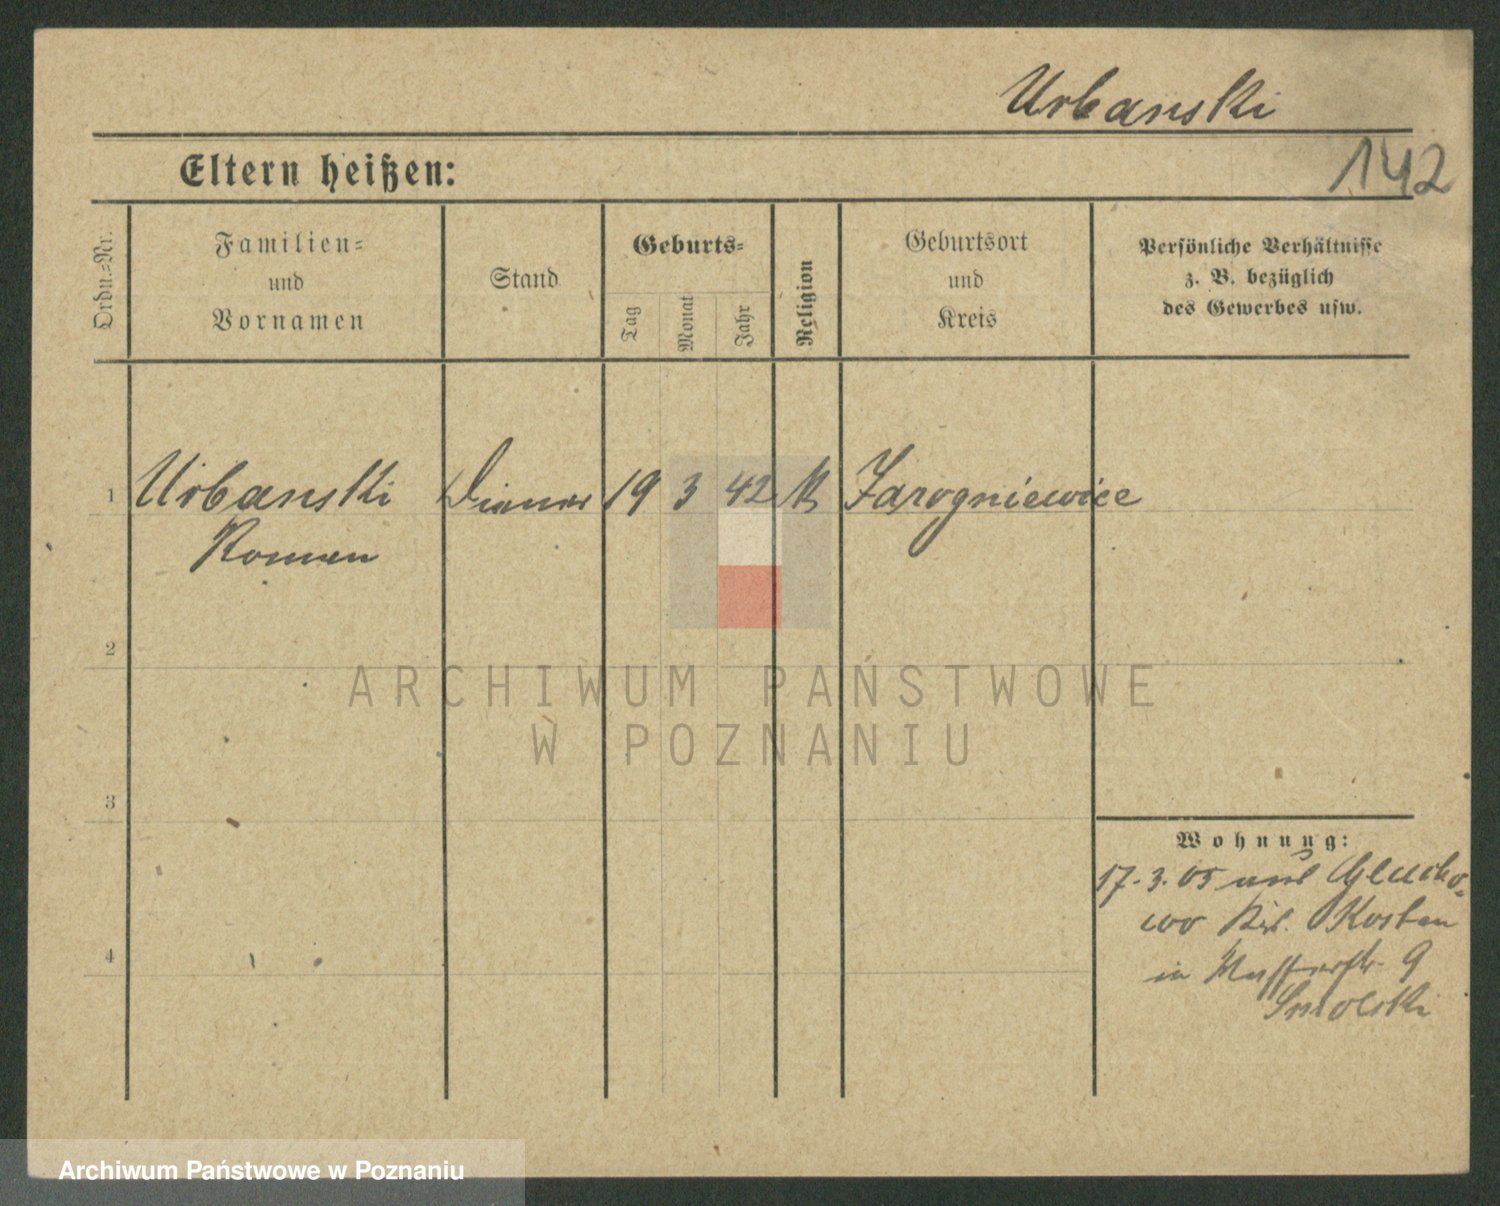 Urbanski
142
Eltern heißen:
Ordn.=Nr.
Familien=
und
Vornamen
Stand
Geburts=
Tag
Monat
Jahr
Religion
Geburtsort
und
Kreis
Persönliche Verhältnisse
z. B. bezüglich
des Gewerbes usw.
1 Urbanski Diener 19 3 42 K Jarogniewice
Roman
2
3
4
ARCHIWUM PAŃSTWOWE
W POZNANIU
Wohnung:
17.3.05 aus Glucho=
wo Krs. Kosten
in 9
Smolski
Archiwum Państwowe w Poznaniu